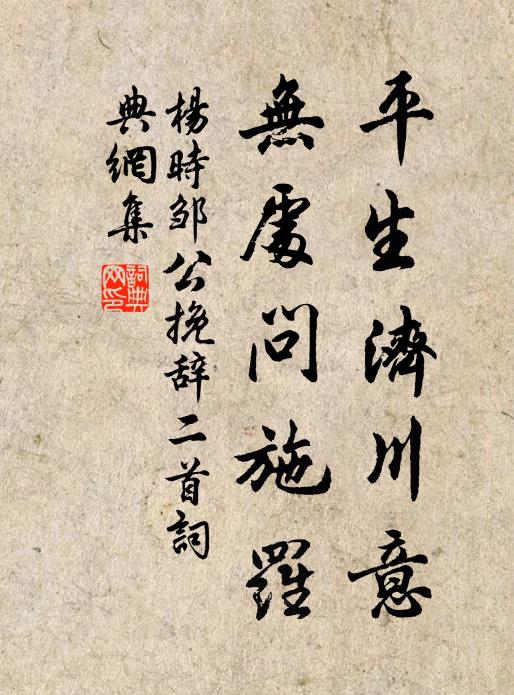 平生濟川意
無處問施羅
楊時邹公挽辞二首詞
典網集
詞典網印